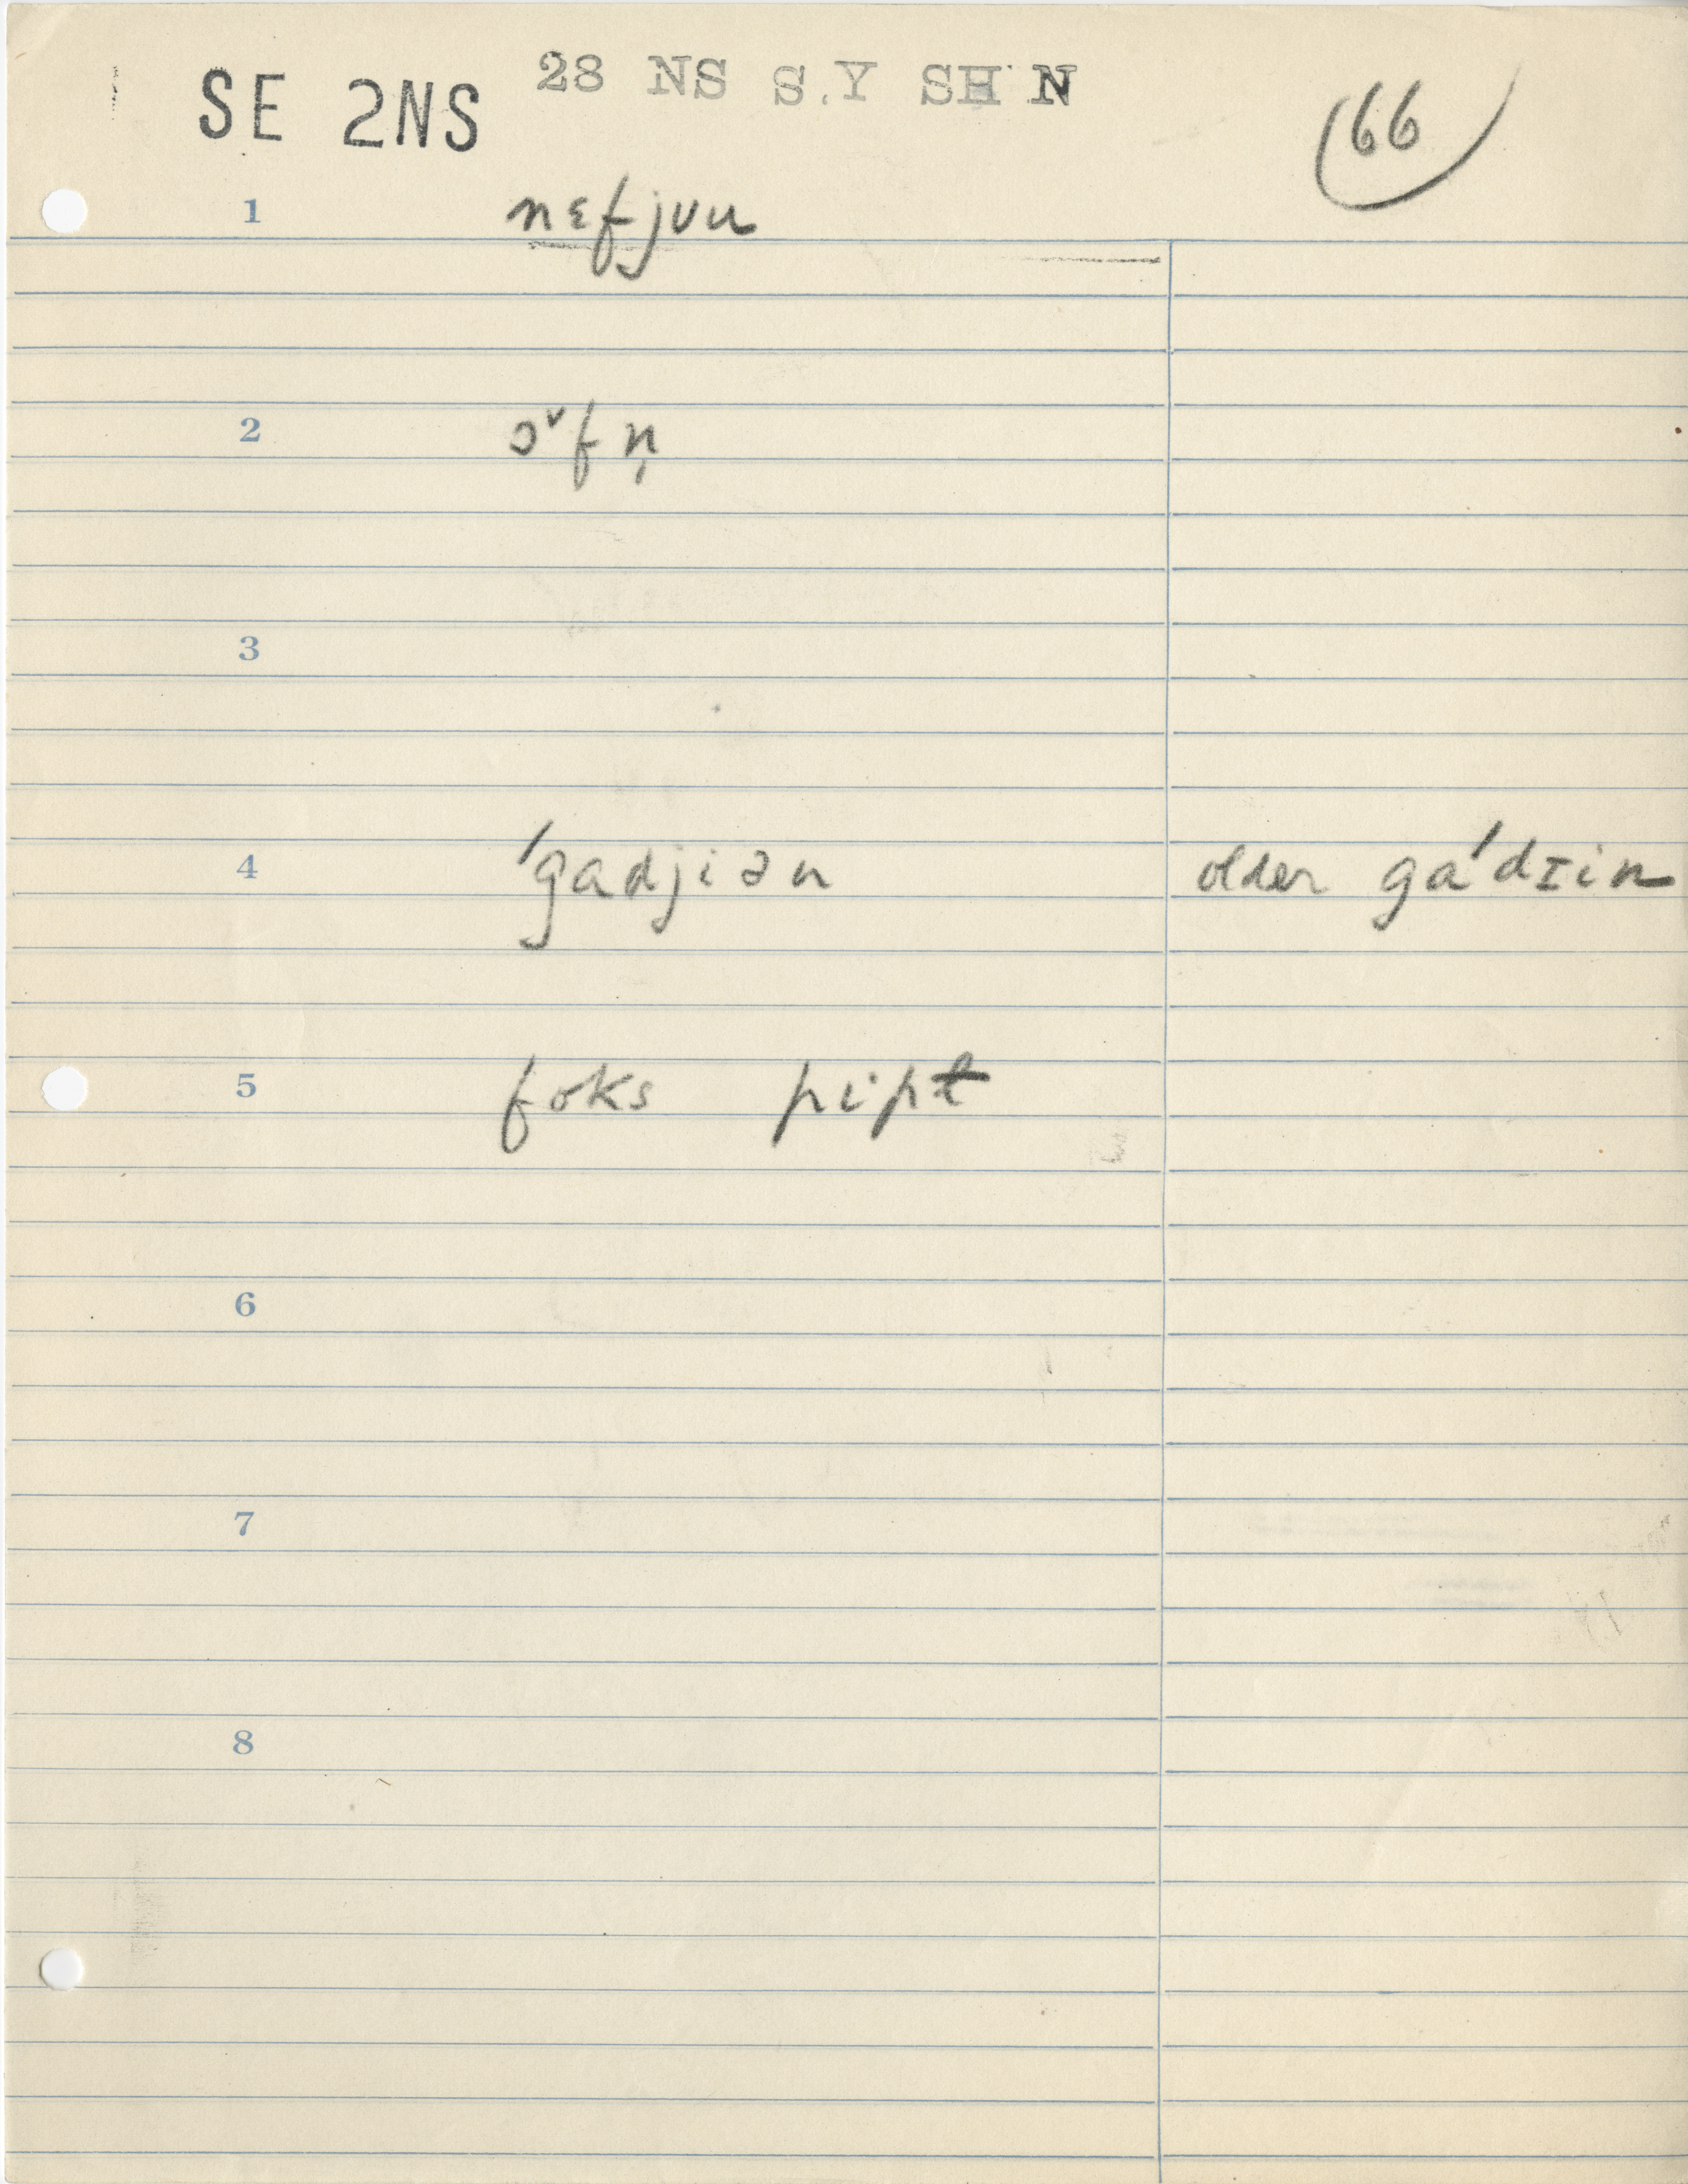 SE 2NS 28 NS S.Y SH N 66
1 nɛfjuu
2 ɔˇfn̩
3
4 ˈgadjiən older gaˈdɪin
5 foks pipt
6
7
8